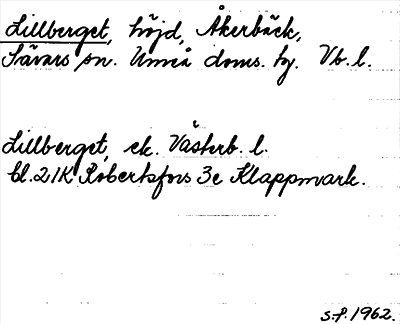 Lillberget, höjd, Åkerbäck,
Sävars sn. Umeå doms. tg. Vb. l.
Lillberget, ek. Västerb. l.
bl. 21K Robertsfors 3e Klappmark.
s.f. 1962.